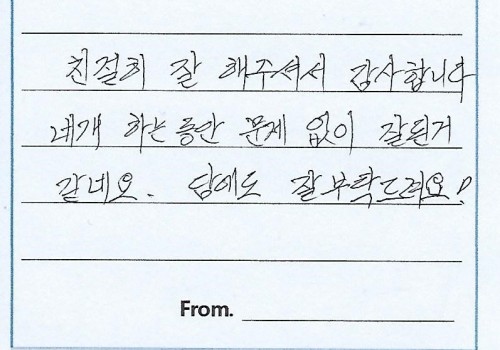 친절히 잘 해주셔서 감사합니다
네개 하는동안 문제 없이 잘된거
같네요. 담에도 잘부탁드려요!
From.